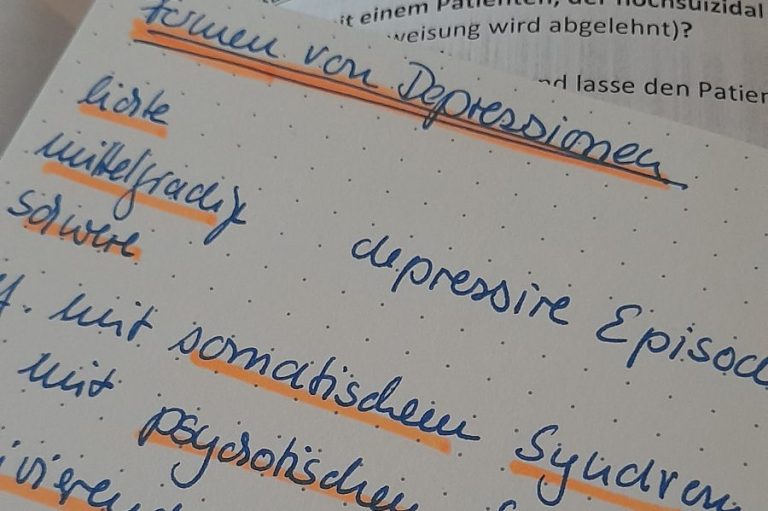 it einem Patienten, der hochsuizidal
weisung wird abgelehnt)?
nd lasse den Patien
Formen von Depressionen
lichte
mittelgradige
schwere
depressive Episod
mit somatischem Syndrom
mit psychotischen
ivierend